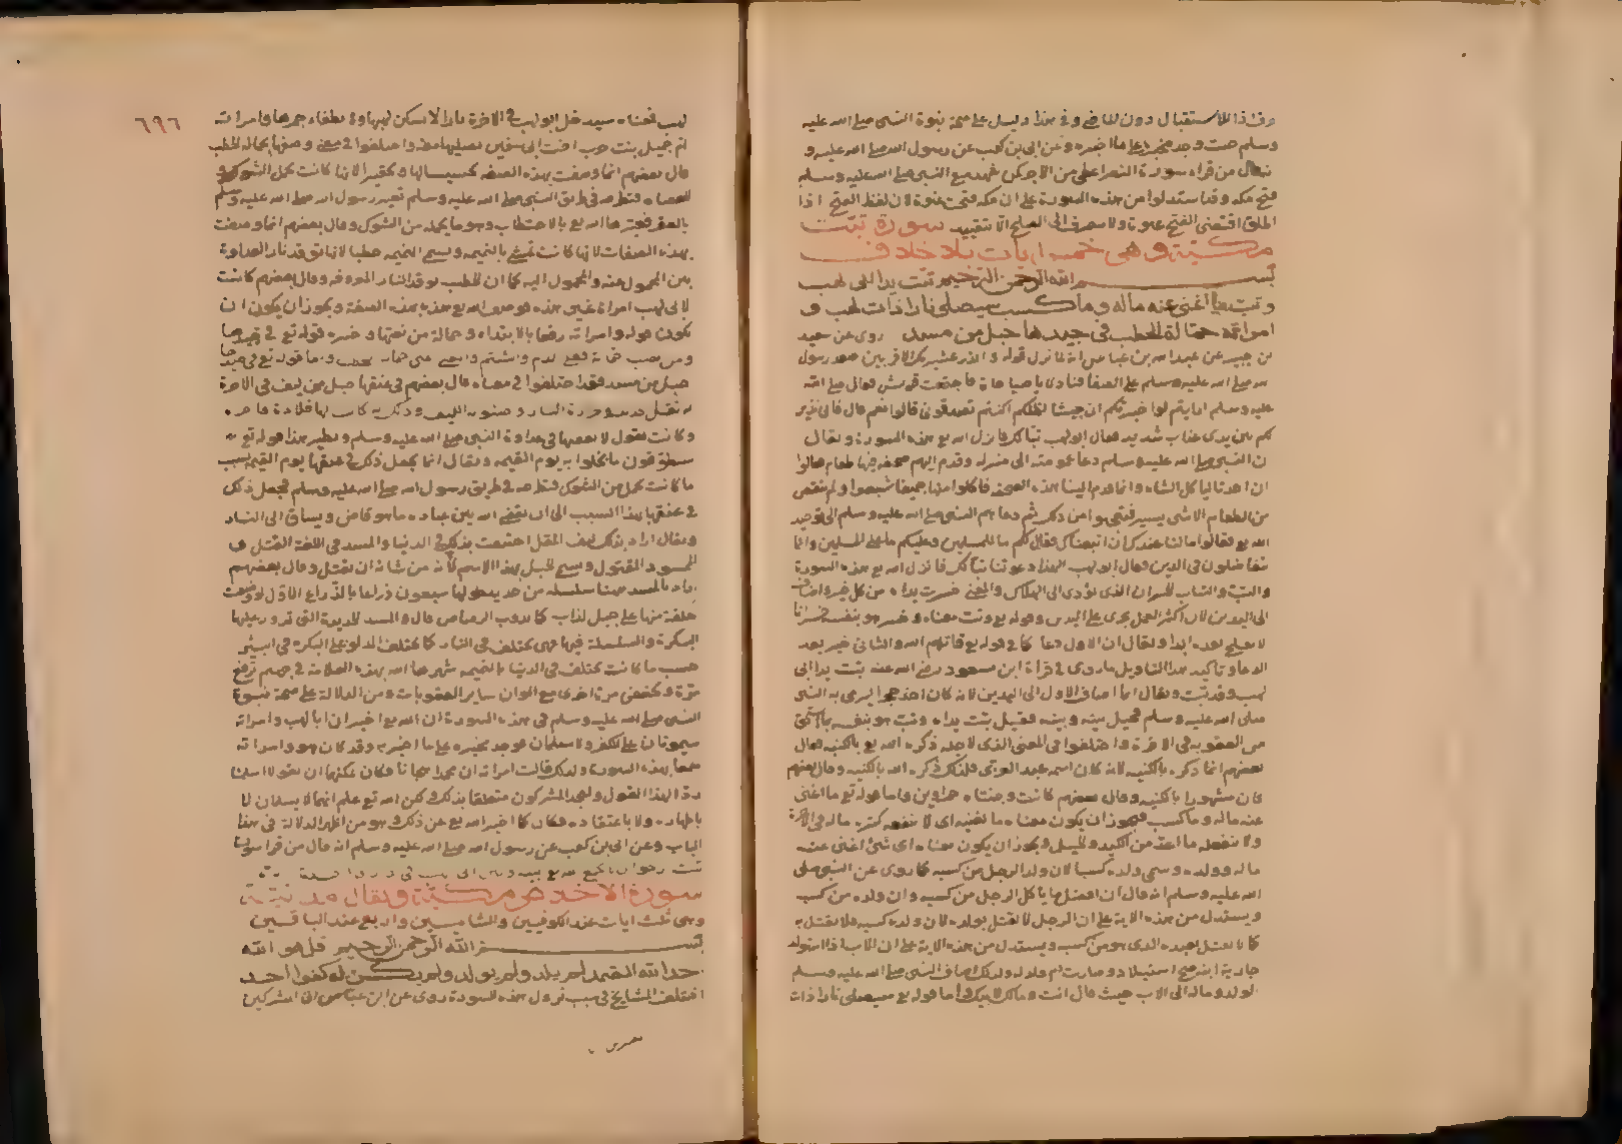 وسلم
فتح مكه وقد استدلوا من هذه السورة على ان مكه فتحت عنوة لان لفظ الفتح اذا
سورة تبت
مكية وهي خمس ايات بلا خلاف
بسم الله الرحمن الرحيم تبت يدا ابي لهب
وتب ما اغنى عنه ماله وما كسب سيصلى نارا ذات لهب و
امراته حمالة الحطب في جيدها حبل من مسد روى عن سعيد
بن جبير عن عبد الله بن عباس انه لما نزل قوله وانذر عشيرتك الاقربين صعد رسول
الله صلى الله عليه وسلم على الصفا فنادى يا صباحاه فاجتمعت قريش فقال صلى الله
عليه وسلم ارايتم لو اخبرتكم ان جيشا اكنتم تصدقوني قالوا نعم قال فاني نذير
لكم بين يدي عذاب شديد فقال ابو لهب تبا لك فانزل الله تع هذه السورة ويقال
ان النبي صلى الله عليه وسلم دعا عمومته الى منزله وقدم اليهم صحفه فيها طعام فقالوا
ان احدنا ياكل الشاه وانما قدم الينا هذه الصحفة فاكلوا منها جميعا شبعوا ولم ينقص
من الطعام الا شي يسير فتعجبوا من ذلك ثم دعاهم النبي صلى الله عليه وسلم الى توحيد
الله تع فقالوا ما لنا عندك ان اتبعناك فقال لكم ما للمسلمين وعليكم ما على المسلمين وانما
تتفاضلون في الدين فقال ابو لهب الهذا دعوتنا تبا لك فانزل الله تع هذه السورة
والتب والتباب الخسران الذي يؤدي الى الهلاك والمعنى خسرت يداه من كل خير واضاف
الى اليدين لان اكثر العمل يجري على اليدين وقوله تع وتب معناه وخسر هو بنفسه خسرانا
لا يفلح بعده ابدا ويقال ان الاول دعا كما في قوله تع قاتلهم الله والثاني خبر بعد
الدعاء وتاكيد هذا التاويل ما روى في قراة ابن مسعود رضي الله عنه تبت يدا ابي
لهب وقد تب ويقال انما اضاف الاول الى اليدين لانه كان اخذ حجرا ليرمى به النبي
صلى الله عليه وسلم فحيل بينه وبينه فقيل تبت يداه وتب هو بنفسه بما استحق
من العقوبه في الاخرة واختلفوا في المعنى الذي لاجله ذكره الله تع بالكنيه فقال
بعضهم انما ذكره بالكنيه لانه كان اسمه عبد العزى فلذلك ذكره الله بالكنيه وقال بعضهم
كان مشهورا بالكنيه وقال بعضهم كانت وجنتاه حمراوين واما قوله تع ما اغنى
عنه ماله وما كسب فيجوز ان يكون معناه ما يغنيه اى لا ينفعه كثره ماله في الاخرة
ولا ينفعه ما اعتد من الكيد والحيل ويجوز ان يكون معناه اى شئ اغنى عنه
ماله وولده وسمى ولده كسبا لان ولد الرجل من كسبه كما روى عن النبي صلى
الله عليه وسلم انه قال ان افضل ما ياكل الرجل من كسبه وان ولده من كسبه
ويستدل من هذه الاية على ان الرجل لا يقتل بولده لان ولده كسبه فلا يقتل به
كما لا يقتل بعبده الذي هو من كسبه ويستدل من هذه الاية على ان الاب اذا استولد
جارية ابنه صح استيلاده وصارت ام ولد له ولذلك اضاف النبي صلى الله عليه وسلم
الولد وماله الى الاب حيث قال انت ومالك لابيك واما قوله تع سيصلى نارا ذات
٦٩٦
لهب فمعناه سيدخل ابو لهب في الاخرة نارا لا يسكن لهبها ولا يطفاء جمرها وامراته
ام جميل بنت حرب اخت ابي سفين تصلاها معه واختلفوا في معنى وصفها بحماله الحطب
قال بعضهم انما وصفت بهذه الصفه تخسيسا لها وتحقيرا لانها كانت تحمل الشوك و
فتطرحه في طريق النبي صلى الله عليه وسلم تعير رسول الله صلى الله عليه وسلم
بالفقر فعيرها الله تع بالاحتطاب وهو ما يحمله من الشوك وقال بعضهم انما وصفت
بهذه الصفات لانها كانت تمشي بالنميمه وتسمى النميمه حطبا لانها توقد نار العداوة
بين المحمول عنه والمحمول اليه كما ان الحطب يوقد النار وقال بعضهم كانت
لابي لهب امراة غير هذه فوصف الله تع هذه بهذه الصفة ويجوز ان يكون ان
يكون قوله وامراته رفعا بالابتداء وحمالة من نعتها وخبره قوله تع في جيدها
ومن نصب حمالة فعلى الذم والشتم واما قوله تع في جيدها
حبل من مسد فقد اختلفوا في معناه قال بعضهم في عنقها حبل من ليف في الاخرة
وكانت تقول لانفقنها في عداوة النبي صلى الله عليه وسلم ونظير هذا قوله تع
سيطوقون ما بخلوا به يوم القيمه ويقال انما يجعل ذلك في عنقها يوم القيمه بسبب
ما كانت تحمل من الشوك فتطرحه في طريق رسول الله صلى الله عليه وسلم فجعل ذلك
في عنقها بهذا السبب الى ان يقضي الله بين عباده ما هو قاض ويساق الى النار
ويقال اراد بذلك ليف المقل اختنقت بذلك في الدنيا والمسد في اللغة الفتل و
الممسود المفتول وسمى الحبل بهذا الاسم لانه من شانه ان يفتل وقال بعضهم
اراد بالمسد ههنا سلسله من حديد طولها سبعون ذراعا بالذراع الاول لو وضعت
حلقة منها على جبل لذاب كما يذوب الرصاص قال والمسد الحديدة التي تدور عليها
البكرة والسلسلة فيها فهي تختلف في النار كما يختلف الدلو على البكرة في البئر
حسب ما كانت تختلف في الدنيا بالنميمه شهرها الله بهذه العلامة في جهنم ترفع
مرة وتخفض مرة اخرى مع الوان ساير العقوبات ومن الدلالة على صحة نبوة
النبي صلى الله عليه وسلم في هذه السورة ان الله تع اخبر ان ابا لهب وامراته
سيموتان على الكفر ولا يسلمان فوجد مخبره على ما اخبر به وقد كان هو وامراته
سمعا بهذه السورة ولذلك قالت امراته ان محمدا هجانا فكان يمكنهما ان يقولا اسلمنا
ردا لهذا القول وليجد المشركون متعلقا بذلك ولكن الله تع علم انهما لا يسلمان لا
باظهاره ولا باعتقاده فكان كما اخبر الله تع عن ذلك وهو من اظهر الدلالة في هذا
الباب وعن ابي بن كعب عن رسول الله صلى الله عليه وسلم انه قال من قرا سورة
تبت رجوت ان لا يجمع الله تع بينه وبين ابي لهب في دار واحدة
سورة الاخلاص مكية ويقال مدنية
وهي ثلث ايات عند الكوفيين والشاميين واربع عند الباقين
بسم الله الرحمن الرحيم قل هو الله
احد الله الصمد لم يلد ولم يولد ولم يكن له كفوا احد
اختلف المشايخ في سبب نزول هذه السورة روى عن ابن عباس ان المشركين